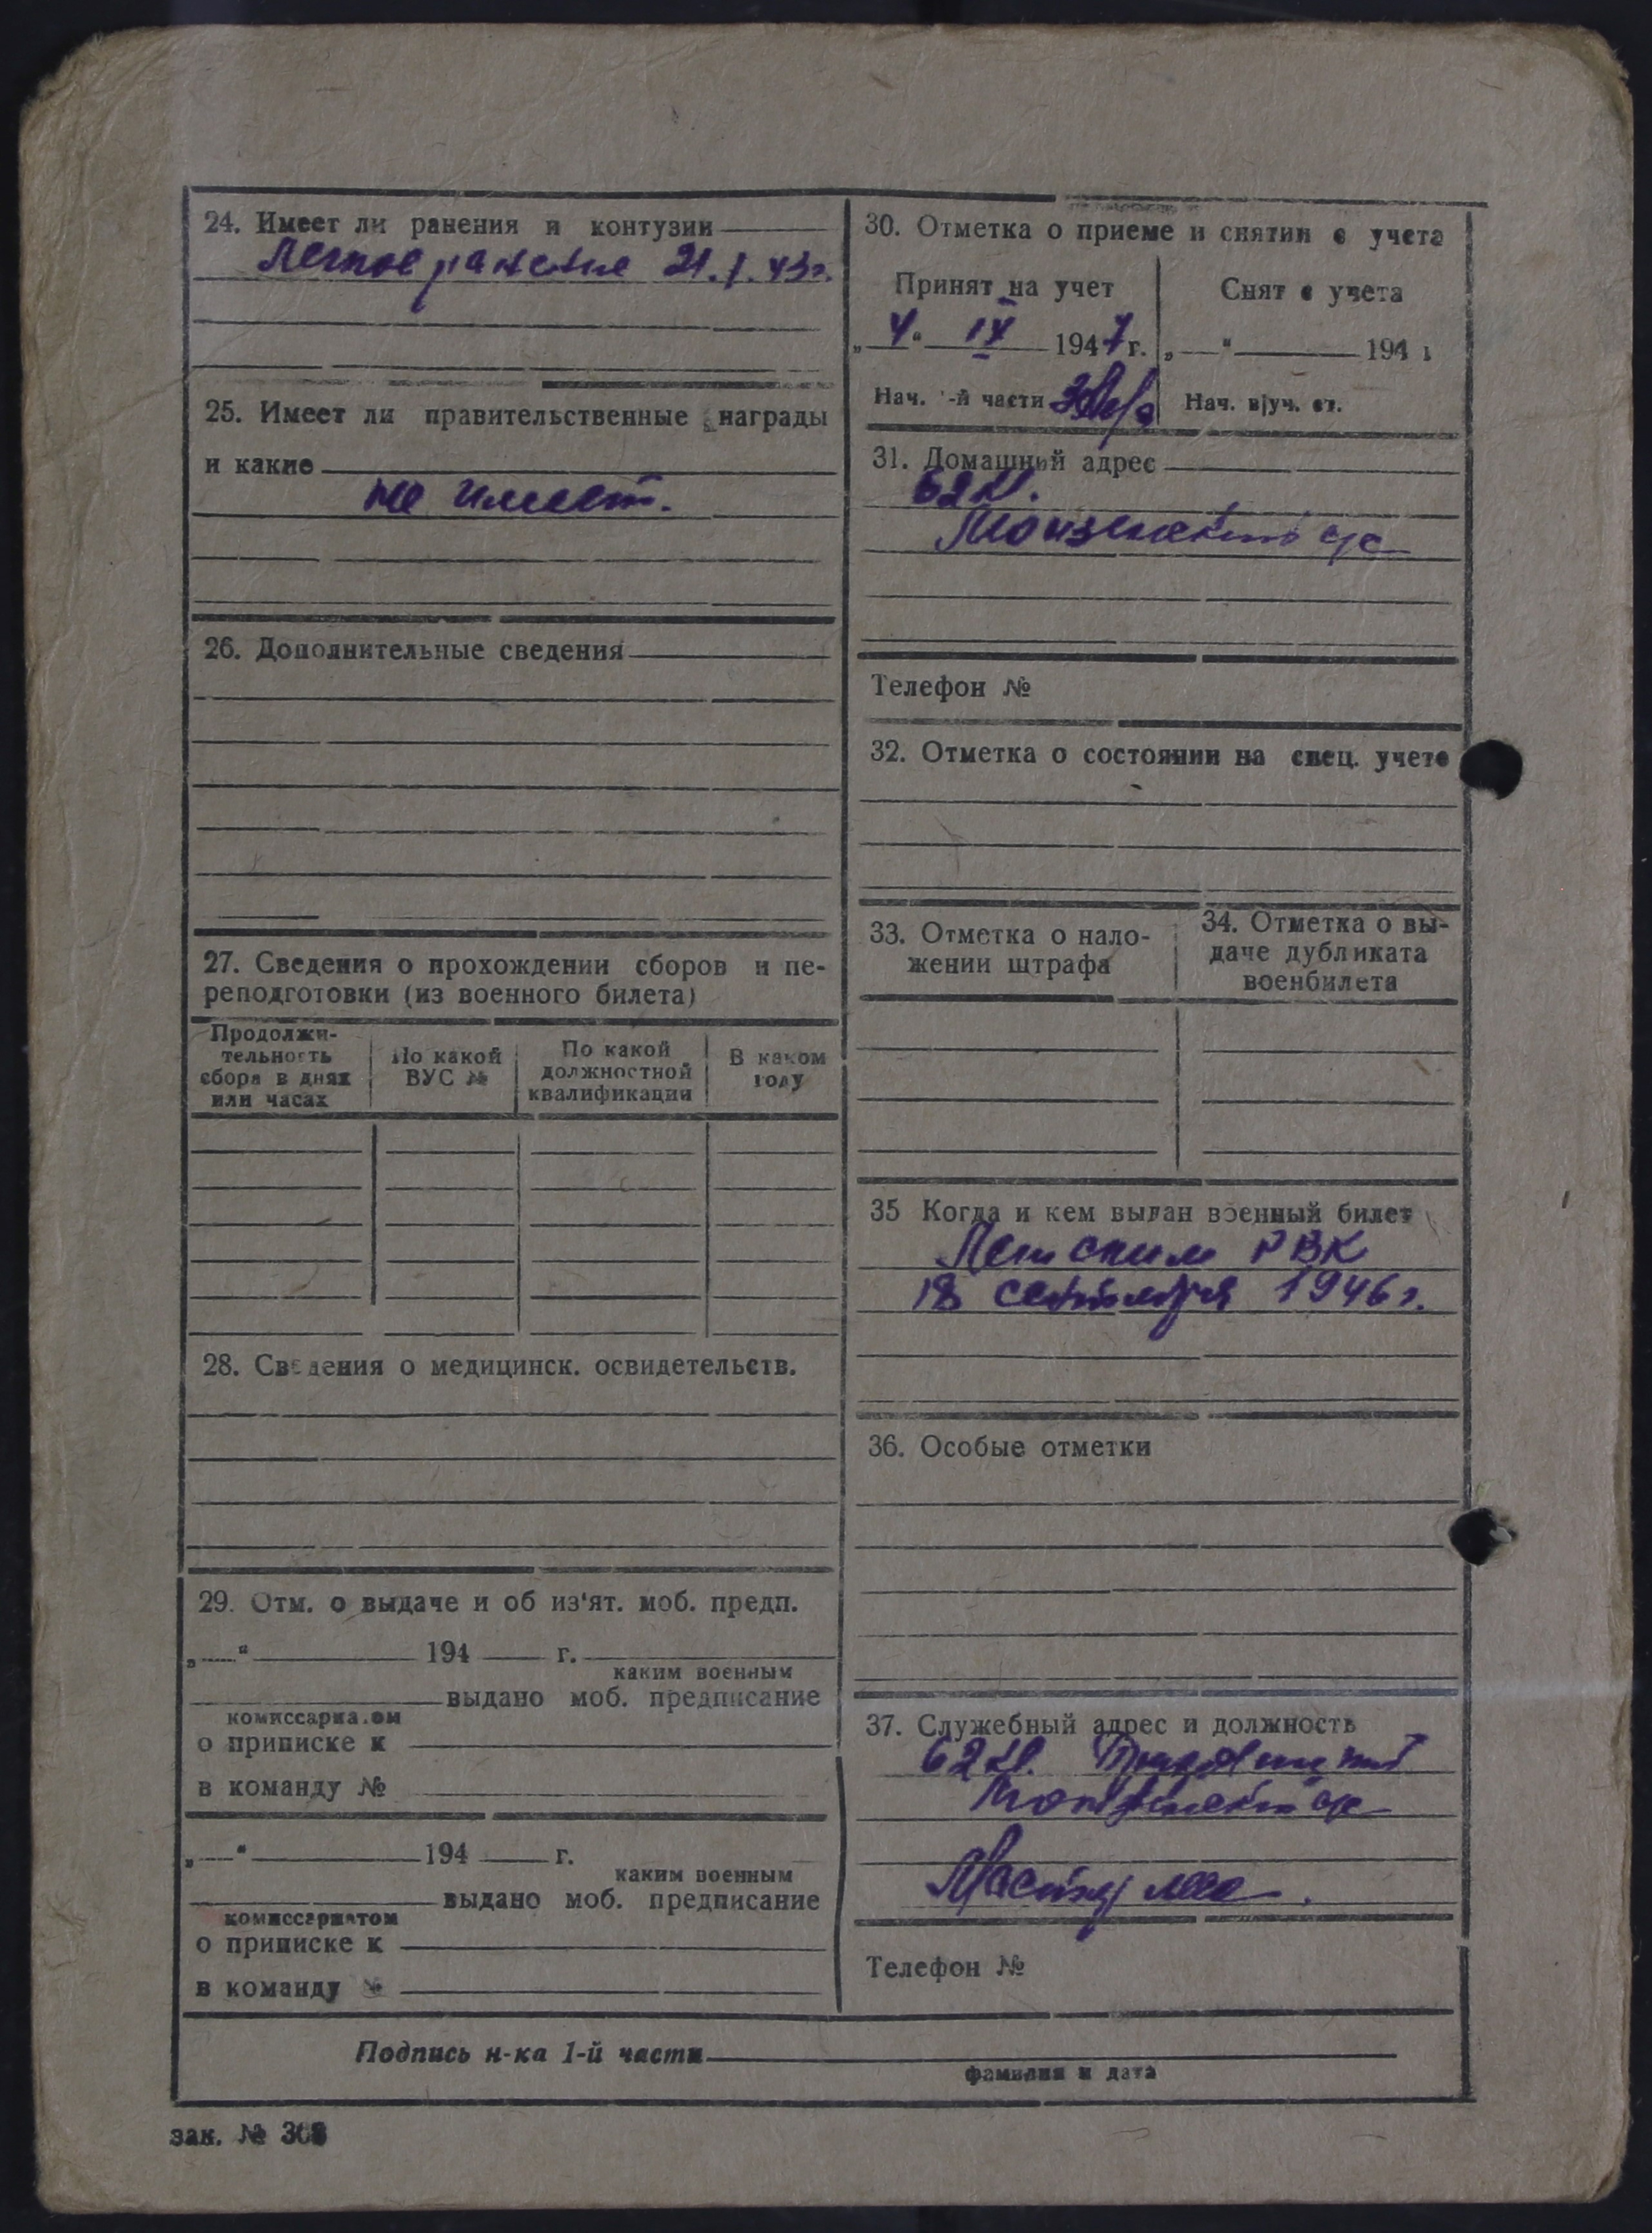 24. Имеет ли ранения и контузии
Легкое ранение 21.I.43г.
25. Имеет ли правительственные награды
и какие
не имеет.
26. Дополнительные сведения
27. Сведения о прохождении сборов и пе-
реподготовки (из военного билета)
Продолжи-
тельность
сбора в днях
или часах
По какой
ВУС №
По какой
должностной
квалификации
В каком
году
28. Сведения о медицинск. освидетельств.
29. Отм. о выдаче и об из'ят. моб. предп.
„ “ 194 г.
каким военным
выдано моб. предписание
комиссариатом
о приписке к
в команду №
„ “ 194 г.
каким военным
выдано моб. предписание
комиссариатом
о приписке к
в команду №
30. Отметка о приеме и снятии с учета
Принят на учет
„4“ IX 1947 г.
Нач. -й части
Снят с учета
„ “ 194
Нач. в|уч. ст.
31. Домашний адрес
62 кв.
Телефон №
32. Отметка о состоянии на спец. учете
33. Отметка о нало-
жении штрафа
34. Отметка о вы-
даче дубликата
военбилета
35 Когда и кем выдан военный билет
РВК
18 сентября 1946 г.
36. Особые отметки
37. Служебный адрес и должность
62 кв.
Телефон №
Подпись н-ка 1-й части
фамилия и дата
зак. № 308